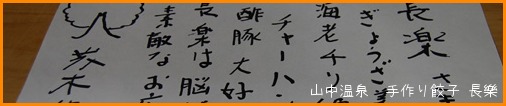 長楽 さ
ぎょうざ美
海老チリ
チャーハン
酢豚大好
長楽は脳
素敵なお
茨木
山中温泉 手作り餃子 長樂